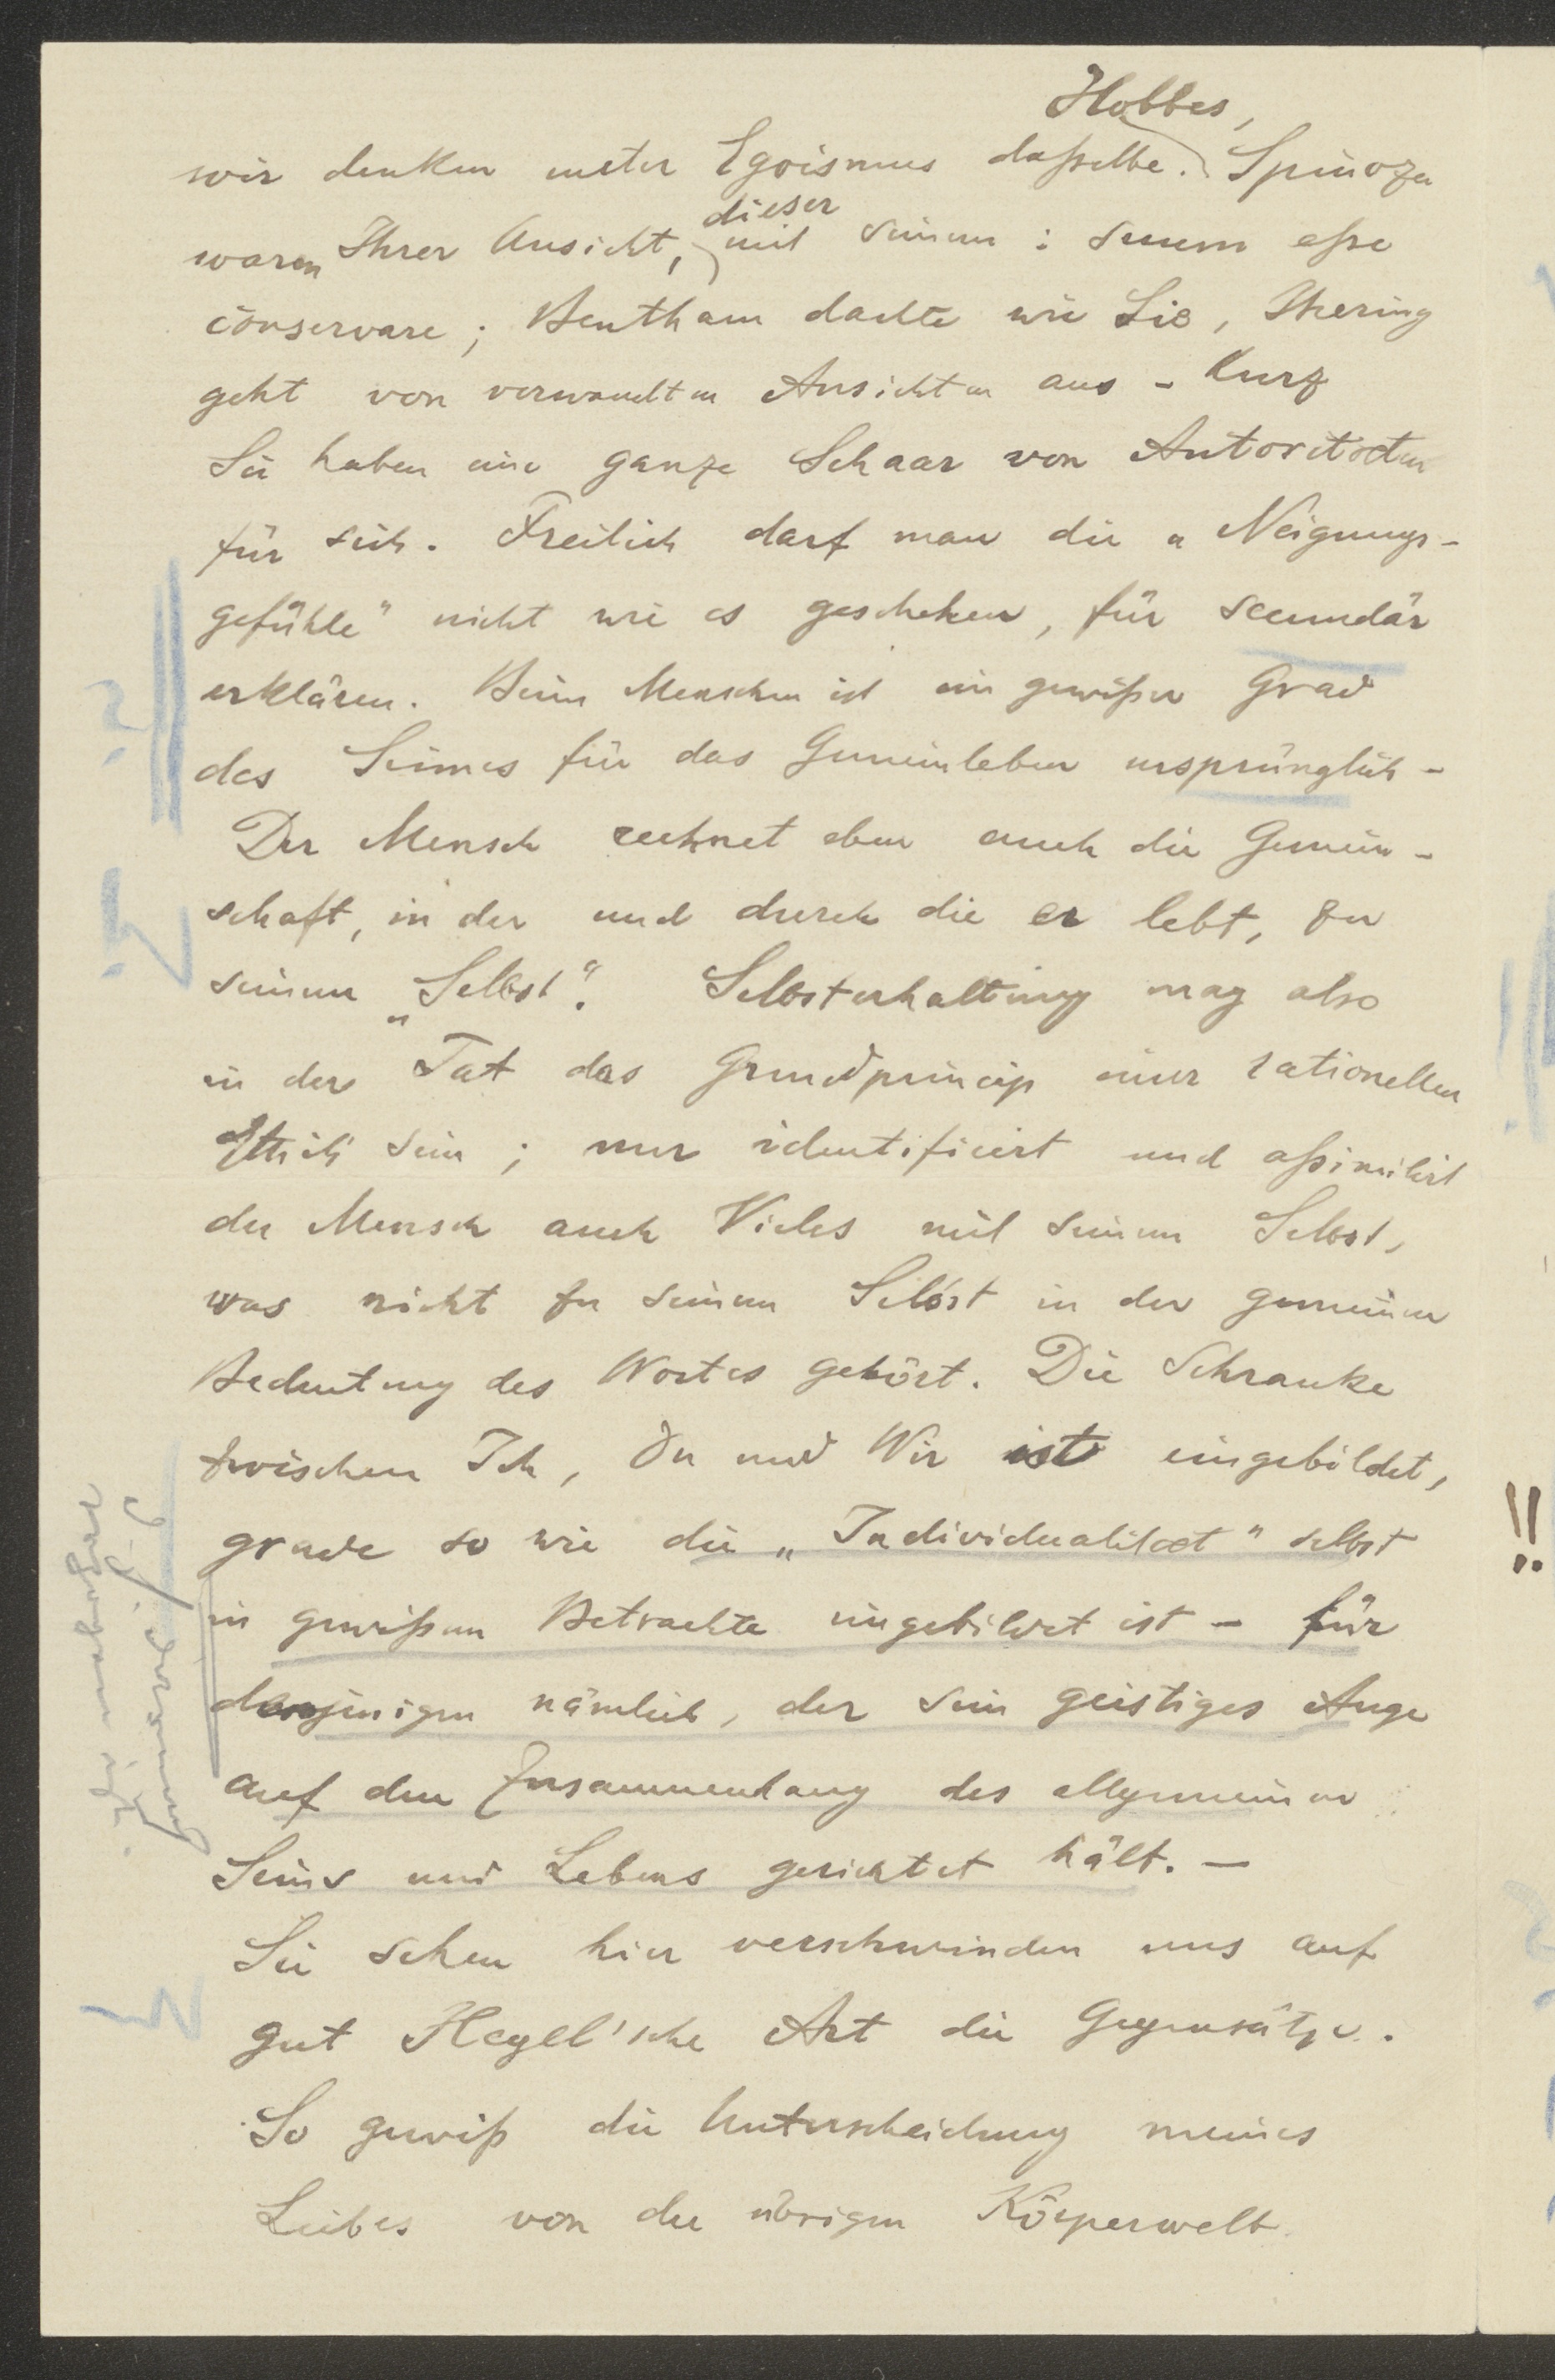 Hobbes,
wir denken unter Egoismus dasselbe. Spinoza
dieser
waren Ihrer Ansicht, mit seinem: suum esse
conservare; Bentham dachte wie Sie, Ihering
geht von verwandten Ansichten aus - Kurz
Sie haben eine ganze Schaar von Autoritäten
für sich. Freilich darf man die „Neigungs-
gefühle" nicht wie es geschehen, für secundär
erklären. Beim Menschen ist ein gewißer Grad
des Sinnes für das Gemeinleben ursprünglich -
Der Mensch rechnet eben auch die Gemein-
schaft, in der und durch die er lebt, zu
seinem „Selbst". Selbsterhaltung mag also
in der Tat das Grundprincip einer rationellen
Ethik sein; nur identificiert und aßimilirt
der Mensch auch Vieles mit seinem Selbst,
was nicht zu seinem Selbst in der gemeinen
Bedeutung des Wortes gehört. Die Schranke
zwischen Ich, Du und Wir ist eingebildet,
grade so wie die „Individualitaet" selbst
in gewißem Betrachte eingebildet ist - für
denjenigen nämlich, der sein geistiges Auge
auf den Zusammenhang des allgemeinen
Seins und Lebens gerichtet hält. -
Sie sehen hier verschwinden uns auf
gut Hegel'sche Art die Gegensätze.
So gewiß die Unterscheidung meines
Leibes von der übrigen Körperwelt
!!